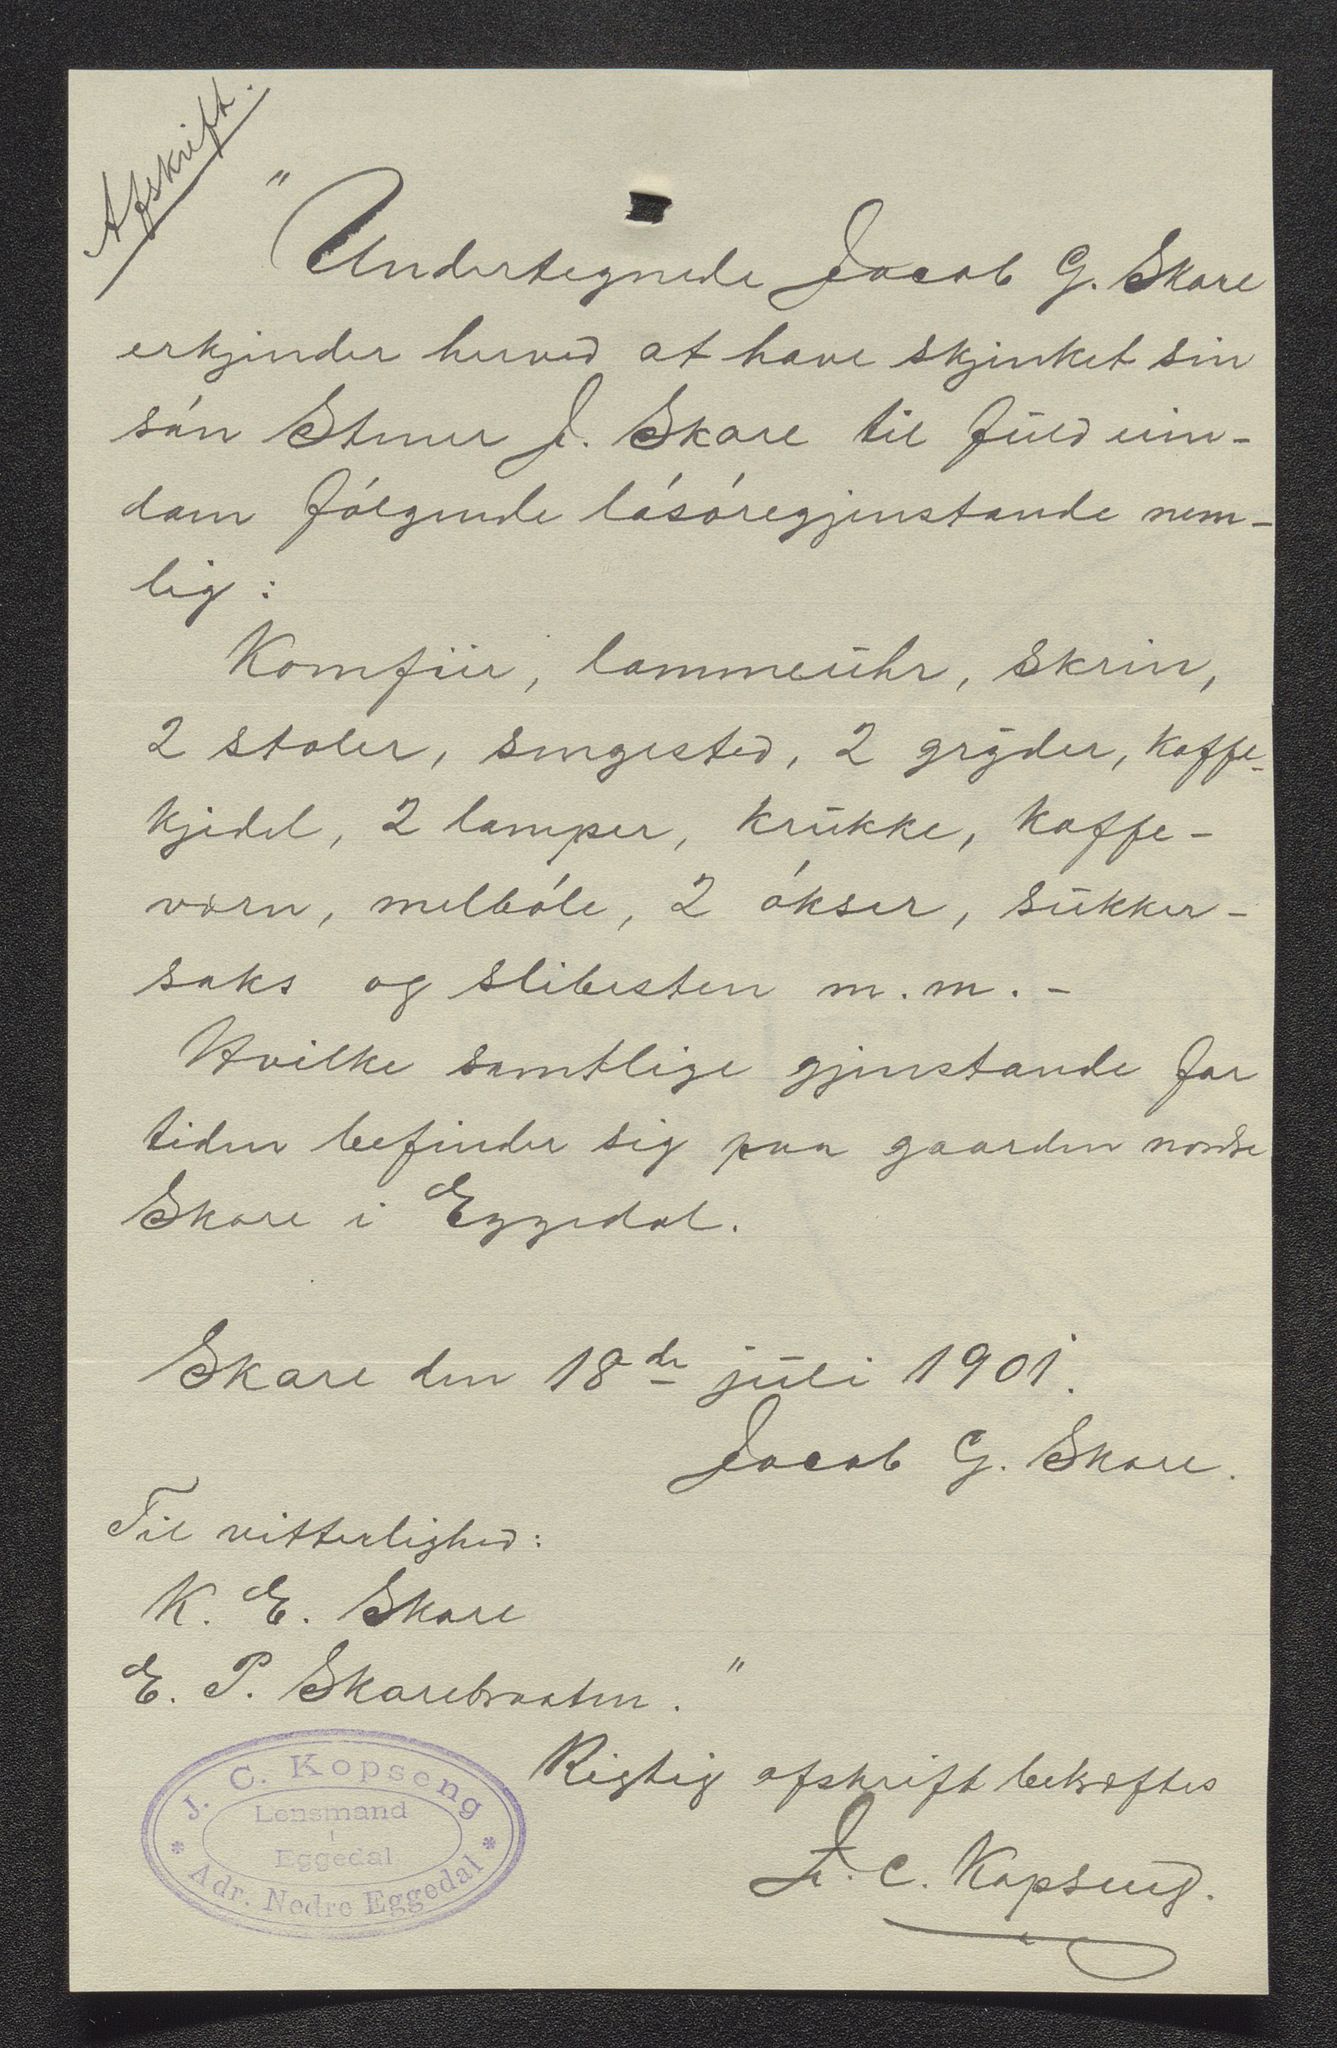 Afskrift.
"Undertegnede Jacob G. Skare
erkjender herved at have skjenket sin
són Stener J. Skare til fuld eien-
dom fólgende lósóregjenstande nem-
lig :
Komfur, lommeuhr, skrin,
2 stoler, sengested, 2 gryder, kaffe-
kjedel, 2 lamper, krukke, kaffe-
værn, melbóle, 2 ókser, sukker-
saks og slibesten m. m. -
Hvilke samtlige gjenstande for
tiden befinder sig paa gaarden nordre
Skare i Eggedal.
Skare den 18de juli 1901.
Jacob G. Skare.
Til vitterlighed:
K. E. Skare
E. P. Skarebraaten. "
Rigtig afskrift bekræftes
J. C. Kopseng.
J. C. Kopseng
Lensmand
i
Eggedal
* Adr. Nedre Eggedal *